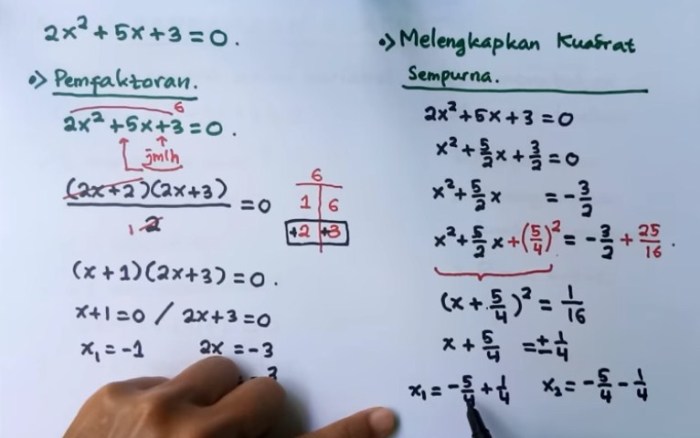 2x² + 5x + 3 = 0.
•> Pemfaktoran.
6
2x² + 5x + 3 = 0.
jmlh
(2x+2)(2x+3) / 2 = 0
1
6
1 | 6
+2 | +3
(x+1)(2x+3) = 0.
x+1=0 / 2x+3=0
x₁ = -1 2x = -3
3
•> Melengkapkan Kuadrat
Sempurna.
2x² + 5x + 3 = 0
x² + 5/2 x + 3/2 = 0
x² + 5/2 x = -3/2
x² + 5/2 x + (5/4)² = -3/2 + 25/16.
(x + 5/4)² = 1/16
x + 5/4 = ± 1/4
x₁ = -5/4 + 1/4 x₂ = -5/4 - 1/4